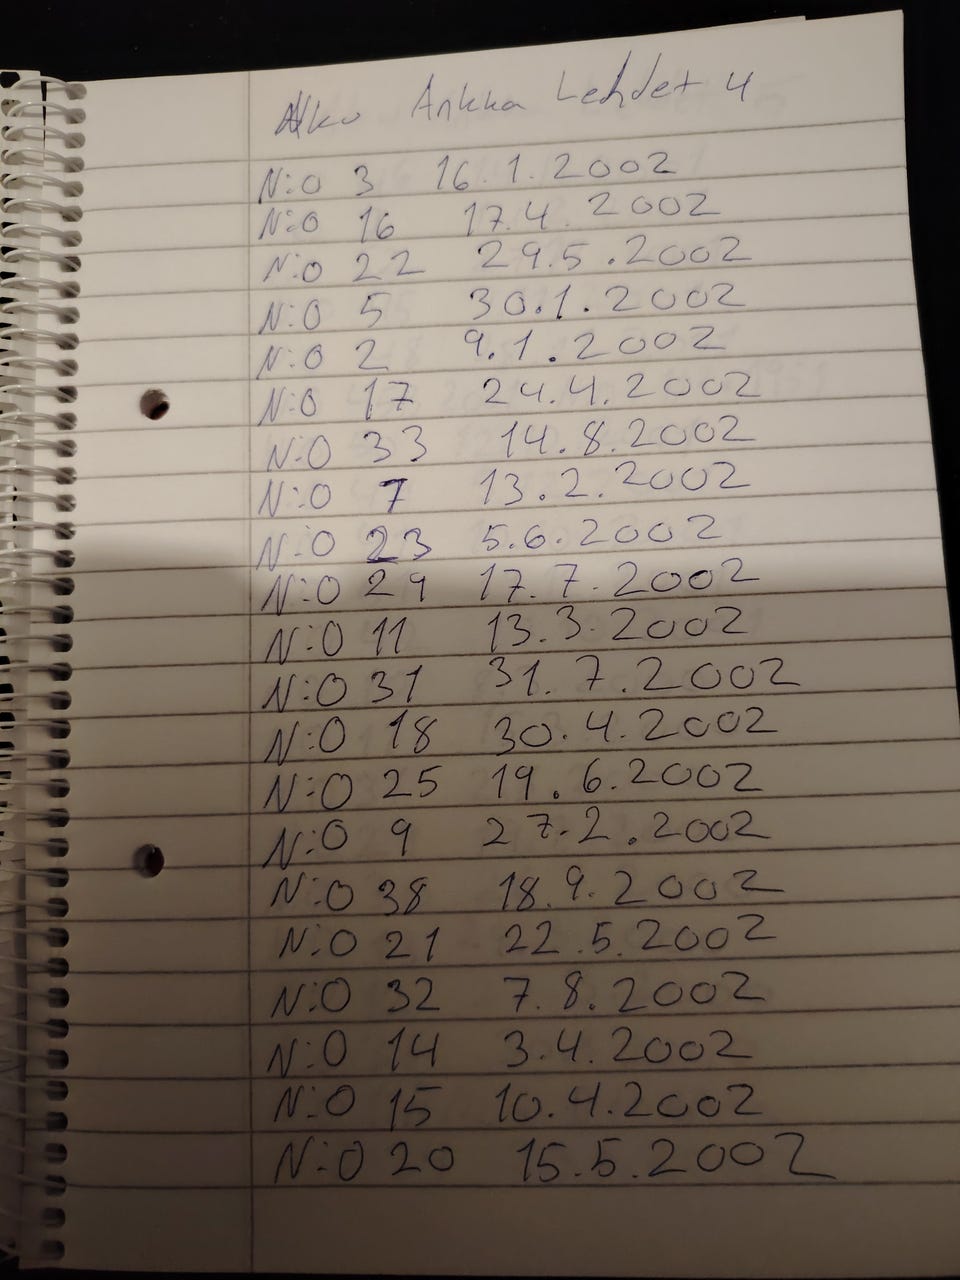 Aku Ankka Lehdet 4
N:o 3 16.1.2002
N:o 16 17.4.2002
N:o 22 29.5.2002
N:o 5 30.1.2002
N:o 2 9.1.2002
N:o 17 24.4.2002
N:o 33 14.8.2002
N:o 7 13.2.2002
N:o 23 5.6.2002
N:o 29 17.7.2002
N:o 11 13.3.2002
N:o 31 31.7.2002
N:o 18 30.4.2002
N:o 25 19.6.2002
N:o 9 27.2.2002
N:o 38 18.9.2002
N:o 21 22.5.2002
N:o 32 7.8.2002
N:o 14 3.4.2002
N:o 15 10.4.2002
N:o 20 15.5.2002